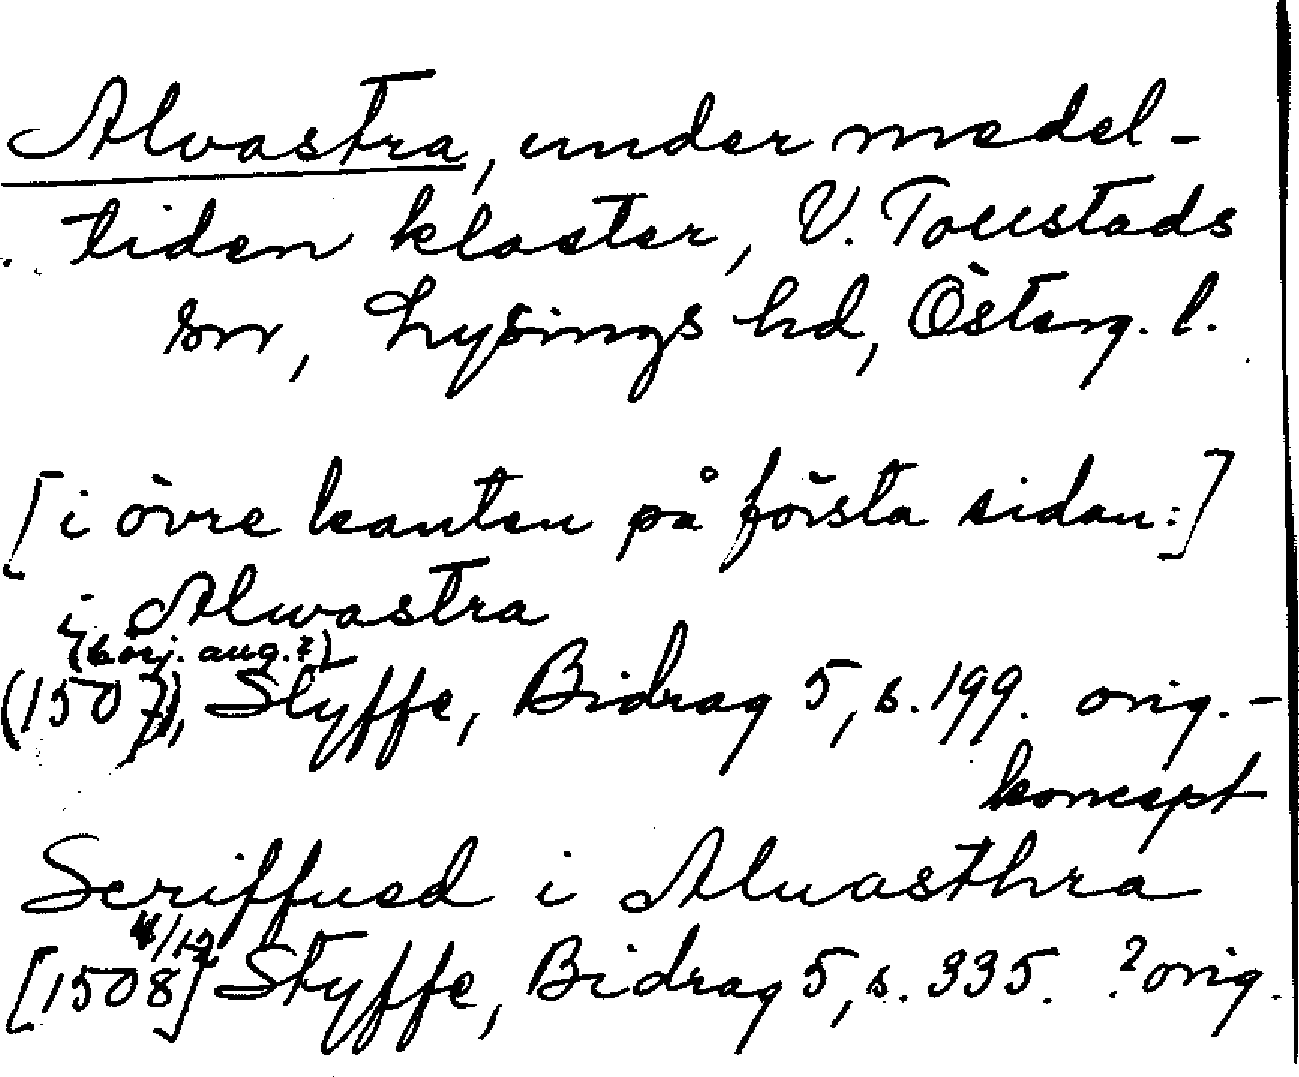 Alvastra, under medel-
tiden kloster, V. Tollstads
sn, Lysings hd, Österg. l.
[i övre kanten på första sidan:]
i Alwastra
(börj. aug.?)
(1507), Styffe, Bidrag 5, s. 199. orig.-
koncept
Scriffued i Aluasthra
4/12
[1508] Styffe, Bidrag 5, s. 335. ? orig.